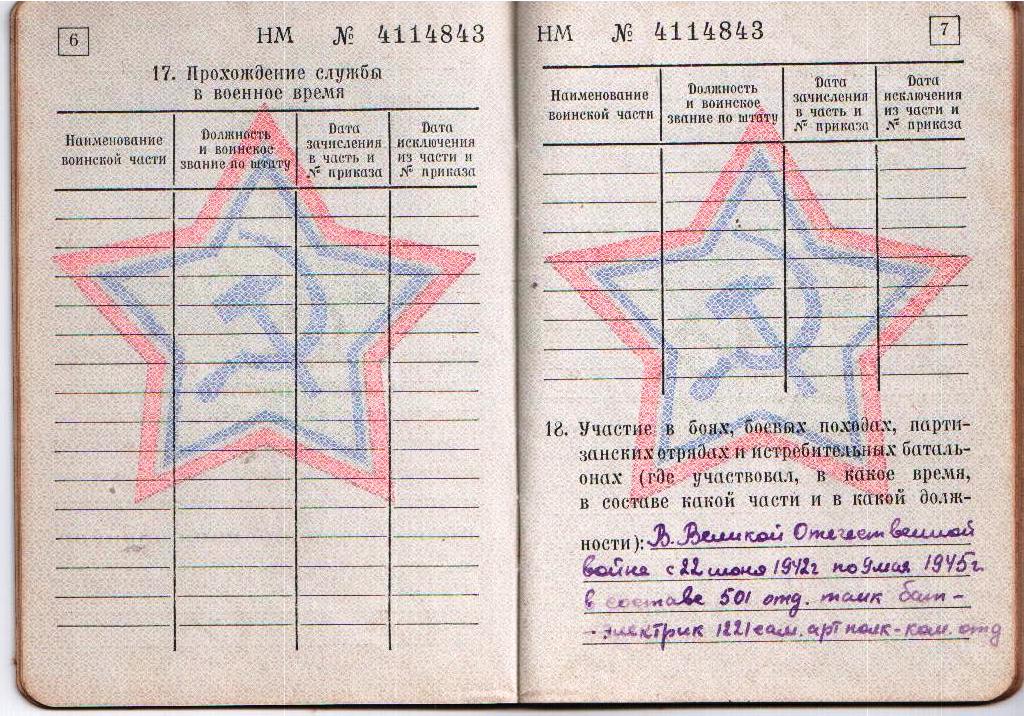 6
НМ № 4114843
17. Прохождение службы
в военное время
Наименование воинской части
Должность и воинское звание по штату
Дата зачисления в часть и № приказа
Дата исключения из части и № приказа
НМ № 4114843
7
Наименование воинской части
Должность и воинское звание по штату
Дата зачисления в часть и № приказа
Дата исключения из части и № приказа
18. Участие в боях, боевых походах, парти-
занских отрядах и истребительных баталь-
онах (где участвовал, в какое время,
в составе какой части и в какой долж-
ности): В. Великой Отечественной
войне с 22 июня 1942г по 9 мая 1945г.
в составе 501 отд. танк бат-
-электрик 1221 сам. арт полк-ком. отд